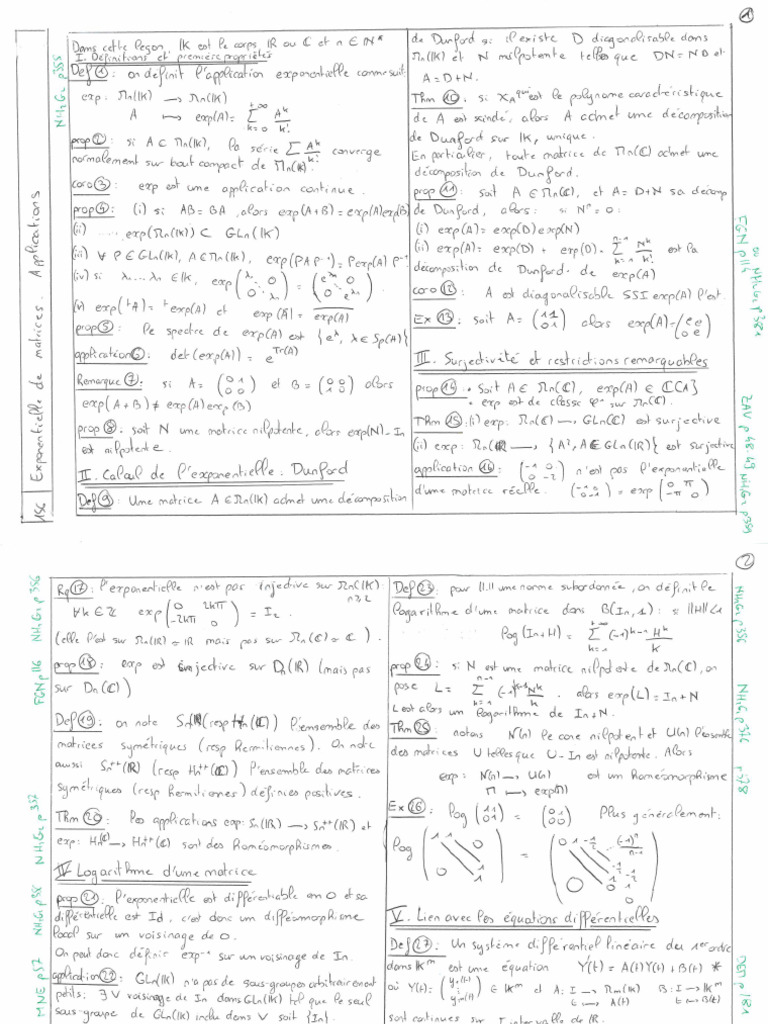 1
156
Exponentielle de matrices. Applications
NH2G2 p355
Dans cette leçon, IK est le corps IR ou C et n ∈ IN*
I. Définitions et premières propriétés
Def 1 : on définit l'application exponentielle comme suit:
exp: Mn(IK) → Mn(IK)
A ↦ exp(A) = Σ_{k=0}^{+∞} A^k/k!
prop 2 : si A ⊂ Mn(IK), la série Σ A^k/k! converge
normalement sur tout compact de Mn(IK).
coro 3 : exp est une application continue.
prop 4 : (i) si AB = BA, alors exp(A+B) = exp(A)exp(B)
(ii) exp(Mn(IK)) ⊂ GLn(IK)
(iii) ∀ P ∈ GLn(IK), A ∈ Mn(IK), exp(PAP^-1) = Pexp(A)P^-1
(iv) si λ1...λn ∈ IK, exp(λ1 0 ⋱ 0 λn) = (e^λ1 0 ⋱ 0 e^λn)
(v) exp(tA) = texp(A) et exp(Ā) = exp(A)
prop 5 : le spectre de exp(A) est {e^λ, λ ∈ Sp(A)}
application 6 : det(exp(A)) = e^Tr(A)
Remarque 7 : si A = (0 1 0 0) et B = (0 0 1 0) alors
exp(A+B) ≠ exp(A)exp(B)
prop 8 : soit N une matrice nilpotente, alors exp(N) - In
est nilpotente.
II. Calcul de l'exponentielle: Dunford
Def 9 : Une matrice A ∈ Mn(IK) admet une décomposition
de Dunford si il existe D diagonalisable dans
Mn(IK) et N nilpotente telles que DN = ND et
A = D + N.
Thm 10 : si χA que est le polynome caractéristique
de A est scindé, alors A admet une décomposition
de Dunford sur IK, unique.
En particulier, toute matrice de Mn(C) admet une
décomposition de Dunford.
prop 11 : soit A ∈ Mn(C), et A = D+N sa decomp
de Dunford, alors: si N^n = 0:
(i) exp(A) = exp(D)exp(N)
(ii) exp(A) = exp(D) + exp(D)·Σ_{k=1}^{n-1} N^k/k! est la
décomposition de Dunford de exp(A)
coro 12 : A est diagonalisable SSI exp(A) l'est.
Ex 13 : soit A = (1 1 0 1) alors exp(A) = (e e 0 e)
FGN p114
ou NH2G2 p382
III. Surjectivité et restrictions remarquables
prop 14 : • Soit A ∈ Mn(C), exp(A) ∈ C[A]
• exp est de classe C¹ sur Mn(C).
Thm 15 : (i) exp: Mn(C) → GLn(C) est surjective
(ii) exp: Mn(IR) → {A², A ∈ GLn(IR)} est surjective
application 16 : (-1 0 0 -2) n'est pas l'exponentielle
d'une matrice réelle. (-1 0 0 -1) = exp(0 π -π 0)
ZAV p 48-49 NH2G2 p359
2
NH2G2 p356
Rq 17 : l'exponentielle n'est pas injective sur Mn(IK): n≥2
∀k ∈ Z exp(0 2kπ -2kπ 0) = I2
(elle l'est sur M1(IR) = IR mais pas sur M1(C) = C).
FGN p116
prop 18 : exp est injective sur Dn(IR) (mais pas
sur Dn(C))
Def 19 : on note Sn(IR) (resp Hn(C)) l'ensemble des
matrices symétriques (resp hermiliennes). On note
aussi Sn++(IR) (resp Hn++(C)) l'ensemble des matrices
symétriques (resp hermiliennes) définies positives.
NH2G2 p352
Thm 20 : les applications exp: Sn(IR) → Sn++(IR) et
exp: Hn(C) → Hn++(C) sont des homéomorphismes.
IV Logarithme d'une matrice
NH2G1 p38
prop 21 : l'exponentielle est différentiable en 0 et sa
différentielle est Id, c'est donc un difféomorphisme
local sur un voisinage de 0.
On peut donc définir exp^-1 sur un voisinage de In.
MNE p57
application 22 : GLn(IK) n'a pas de sous-groupes arbitrairement
petits: ∃ V voisinage de In dans GLn(IK) tel que le seul
sous-groupe de GLn(IK) inclu dans V soit {In}.
Def 23 : pour ||.|| une norme subordonnée, on définit le
logarithme d'une matrice dans B(In,1): si ||H|| < 1
log(In+H) = Σ_{k=1}^{+∞} (-1)^{k-1} H^k/k
prop 24 : si N est une matrice nilpotente de Mn(C), on
pose L = Σ_{k=1}^{n-1} (-1)^{k-1} N^k/k. alors exp(L) = In+N
L est alors un logarithme de In+N.
Thm 25 : notons N(n) le cone nilpotent et U(n) l'ensemble
des matrices U telles que U - In est nilpotente. Alors
exp: N(n) → U(n) est un homéomorphisme
M ↦ exp(M)
Ex 26 : log(1 1 0 1) = (0 1 0 0) Plus généralement:
log(1 1 0 ⋱ 1 0 1) = (0 1 -1/2 (-1)^n/n-1 ⋱ -1/2 1 0 0)
V. Lien avec les équations différentielles
Def 27 : Un système différentiel linéaire du 1er ordre
dans IK^m est une équation Y'(t) = A(t)Y(t) + B(t) *
où Y(t) = (y1(t) ⋮ ym(t)) ∈ IK^m et A: I → Mm(IK) B: I → IK^m
t ↦ A(t) t ↦ B(t)
sont continues sur I intervalle de IR.
NH2G2 p356
p378
DEM p181